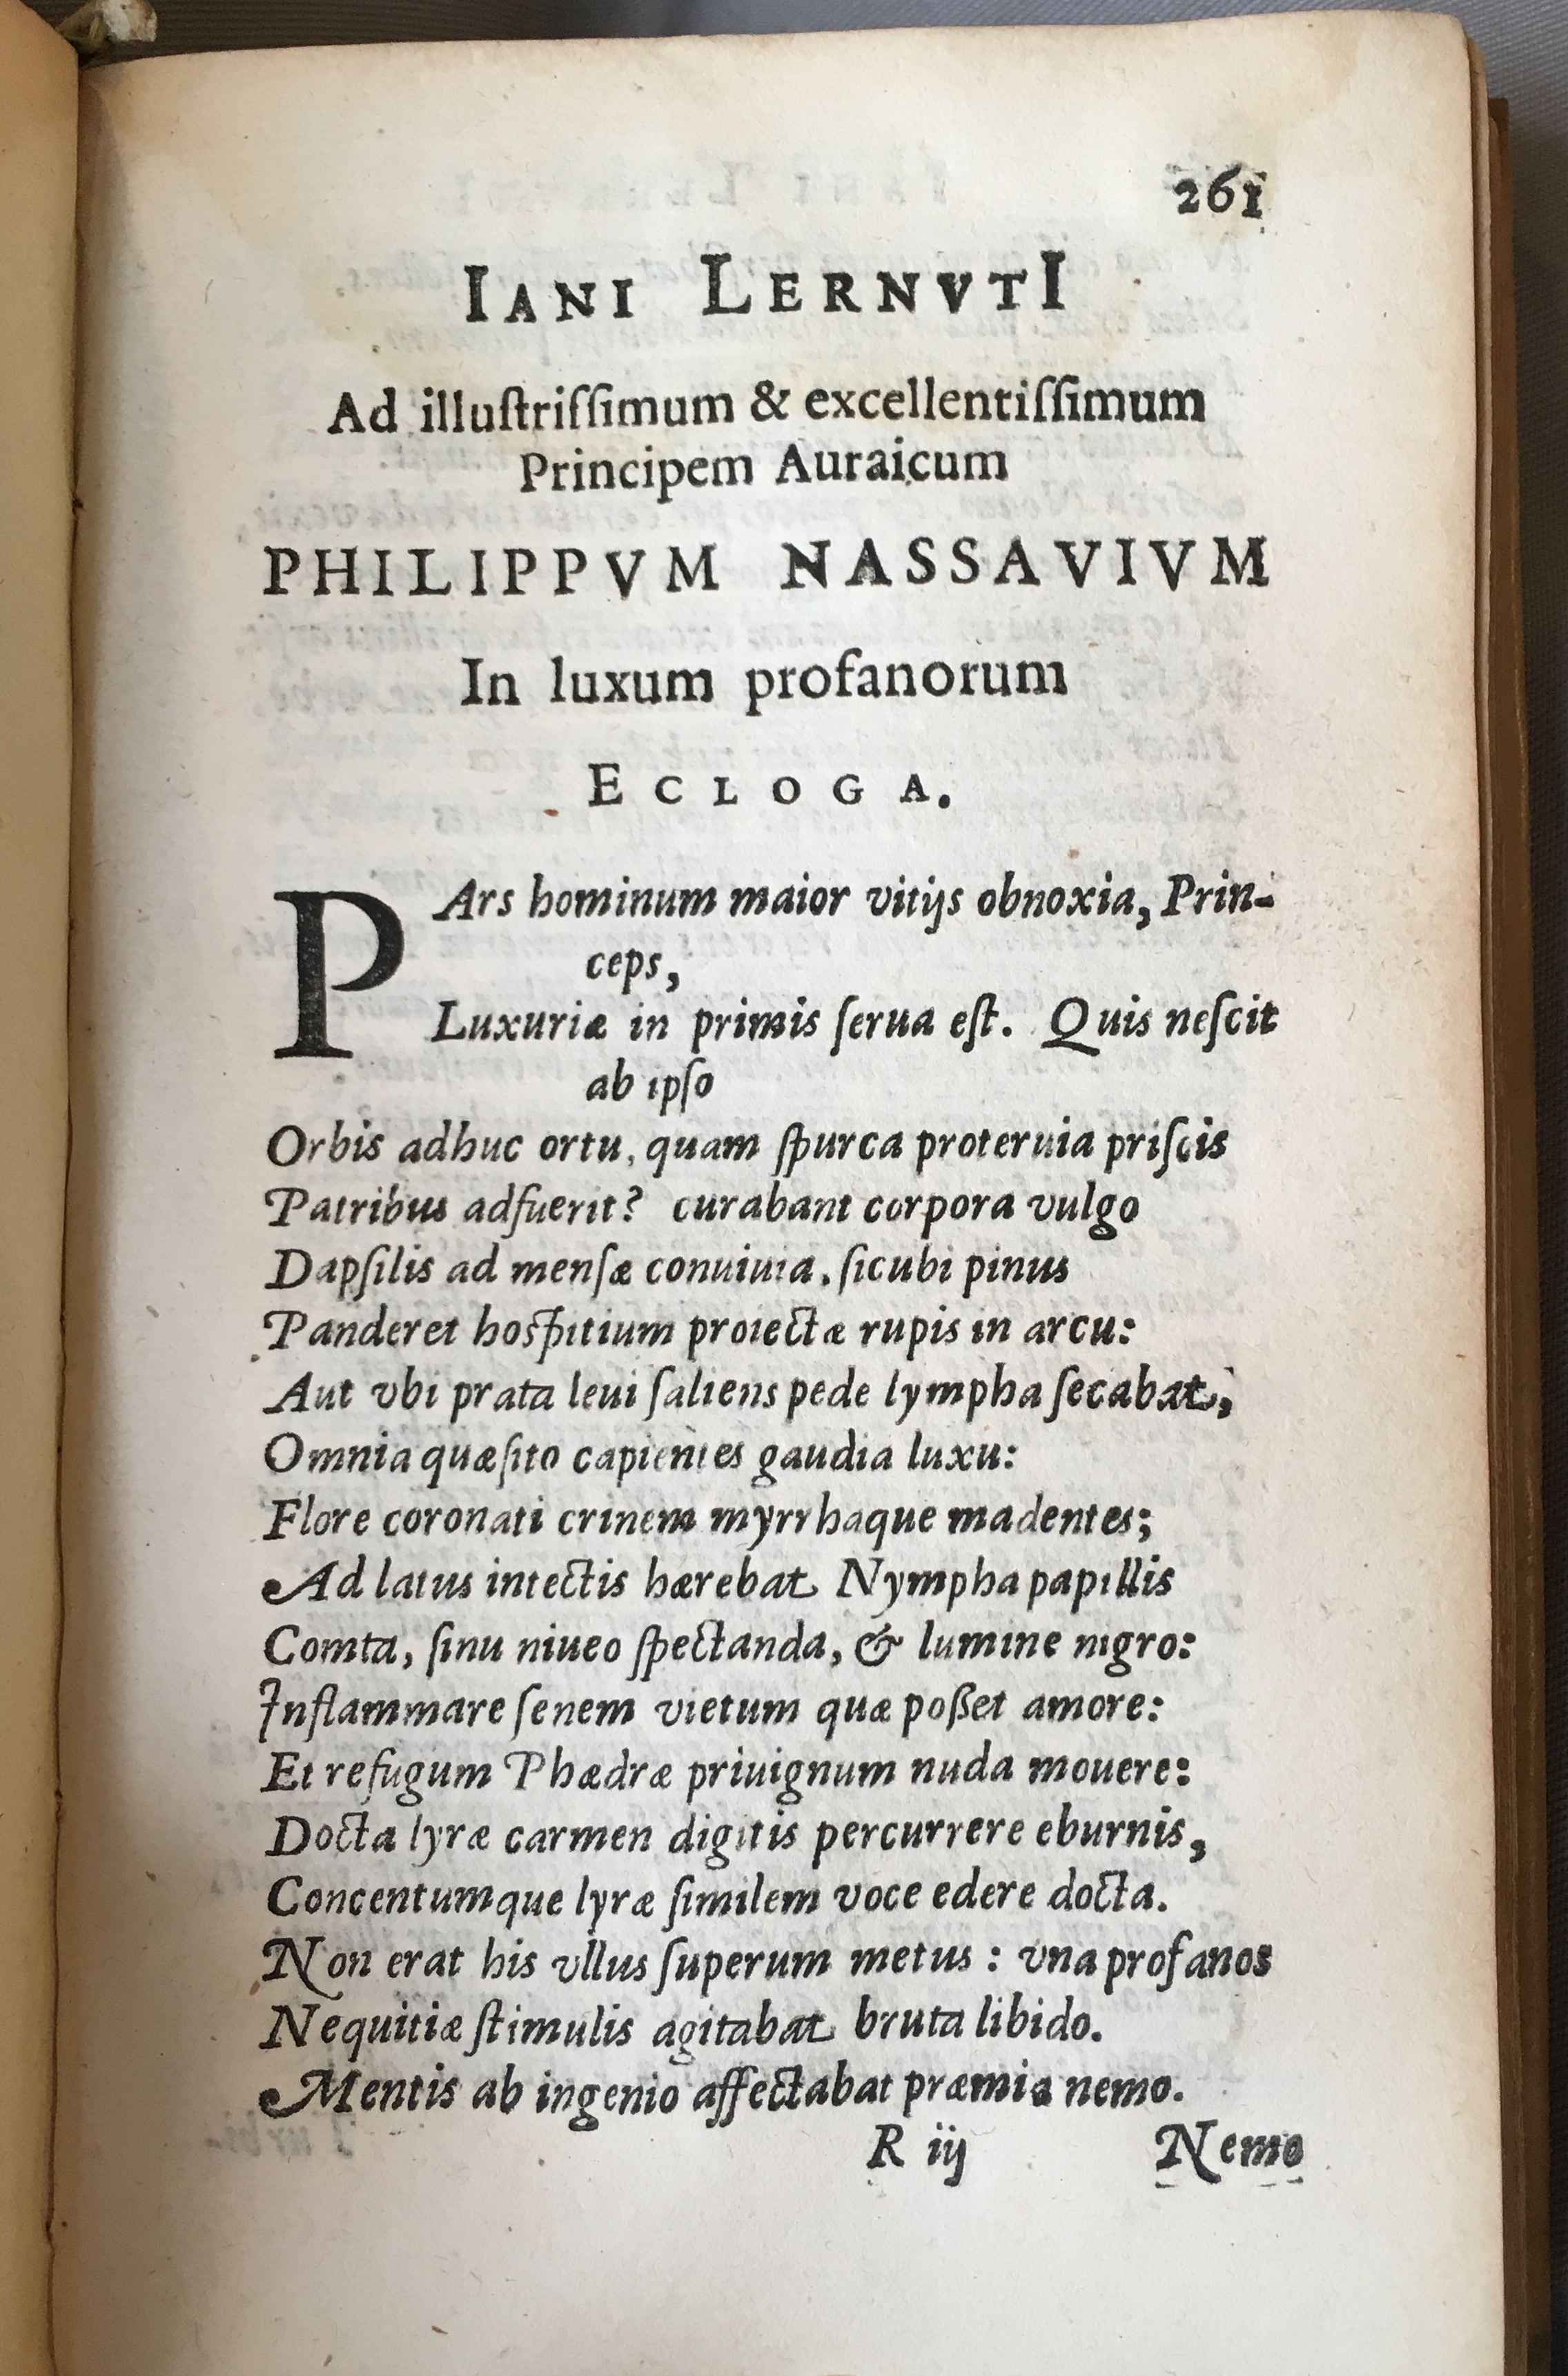 261
IANI LERNVTI
Ad illuſtriſſimum & excellentiſſimum
Principem Auraicum
PHILIPPVM NASSAVIVM
In luxum profanorum
ECLOGA.
PArs hominum maior vitijs obnoxia, Prin-
ceps,
Luxuriæ in primis ſerua eſt. Quis neſcit
ab ipſo
Orbis adhuc ortu, quam ſpurca proteruia priſcis
Patribus adfuerit? curabant corpora vulgo
Dapſilis ad menſæ conuiuia, ſicubi pinus
Panderet hoſpitium proiectæ rupis in arcu:
Aut vbi prata leui ſaliens pede lympha ſecabat,
Omnia quæſito capientes gaudia luxu:
Flore coronati crinem myrrhaque madentes;
Ad latus intectis hærebat Nympha papillis
Comta, ſinu niueo ſpectanda, & lumine nigro:
Inflammare ſenem vietum quæ poßet amore:
Et refugum Phædræ priuignum nuda mouere:
Docta lyræ carmen digitis percurrere eburnis,
Concentumque lyræ ſimilem voce edere docta.
Non erat his vllus ſuperum metus : vna profanos
Nequitiæ ſtimulis agitabat bruta libido.
Mentis ab ingenio affectabat præmia nemo.
R iij Nemo